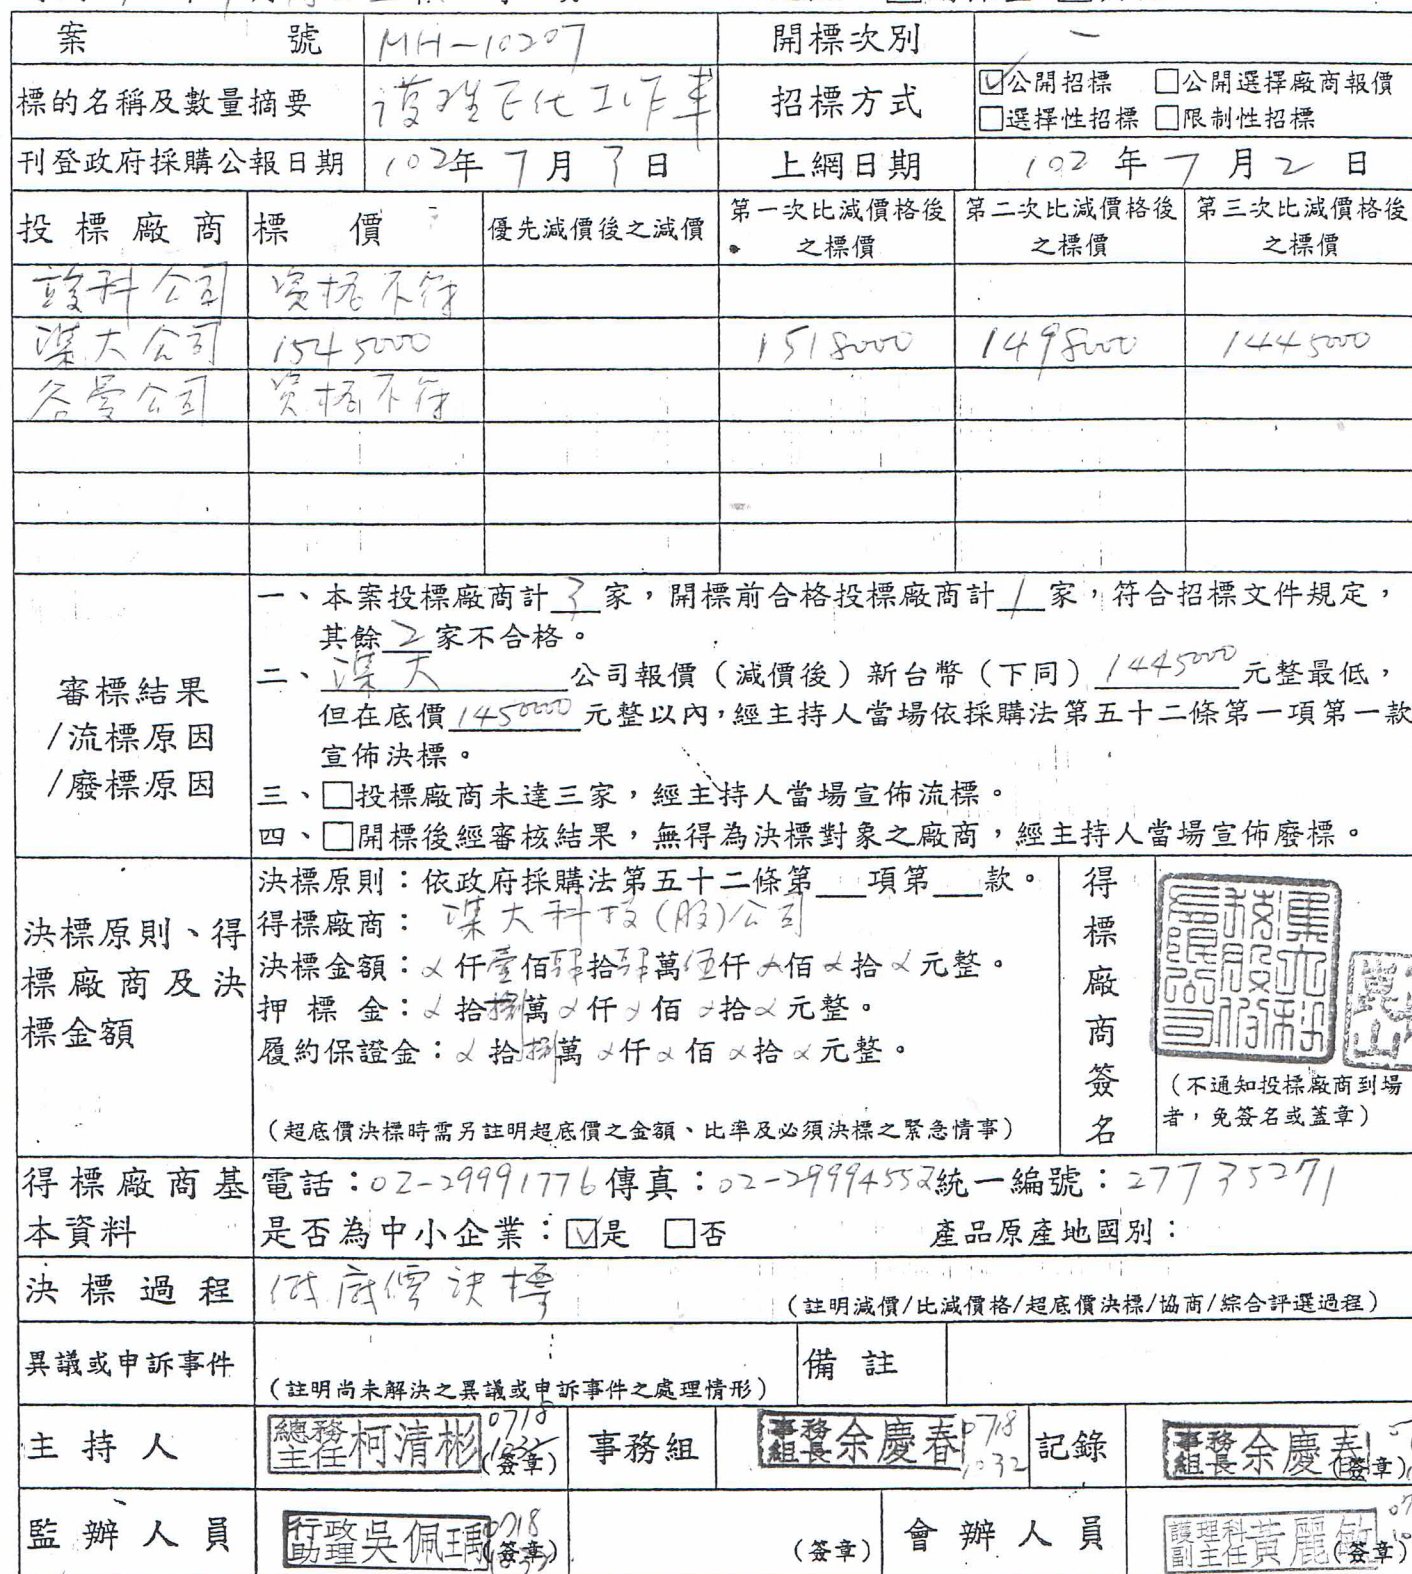 案號 MH-10207 開標次別 一
標的名稱及數量摘要 護理E化工作車 招標方式 ☑公開招標 □公開選擇廠商報價
□選擇性招標 □限制性招標
刊登政府採購公報日期 102年7月3日 上網日期 102年7月2日
投標廠商 標價 優先減價後之減價 第一次比減價格後之標價 第二次比減價格後之標價 第三次比減價格後之標價
公司 資格不符
大公司 1545000 1518000 1498000 1445000
公司 資格不符
一、本案投標廠商計3家，開標前合格投標廠商計1家，符合招標文件規定，
其餘2家不合格。
審標結果
/流標原因
/廢標原因
二、大公司報價（減價後）新台幣（下同）1445000元整最低，
但在底價1450000元整以內，經主持人當場依採購法第五十二條第一項第一款
宣佈決標。
三、□投標廠商未達三家，經主持人當場宣佈流標。
四、□開標後經審核結果，無得為決標對象之廠商，經主持人當場宣佈廢標。
決標原則、得
標廠商及決
標金額
決標原則：依政府採購法第＿項第＿款。
得標廠商：大科技(股)公司
決標金額：仟壹佰肆拾肆萬伍仟佰拾元整。
押標金：拾捌萬仟佰拾元整。
履約保證金：拾捌萬仟佰拾元整。
（超底價決標時需另註明超底價之金額、比率及必須決標之緊急情事）
得標廠商簽名
（不通知投標廠商到場
者，免簽名或蓋章）
得標廠商基
本資料
電話：02-29991776 傳真：02-29994552 統一編號：27735271
是否為中小企業：☑是 □否 產品原產地國別：
決標過程 依底價決標 （註明減價/比減價格/超底價決標/協商/綜合評選過程）
異議或申訴事件 （註明尚未解決之異議或申訴事件之處理情形） 備註
主持人 總務主任柯清彬 0718 （簽章） 事務組 事務組長余慶春 0718 1032 記錄 事務組長余慶春（簽章）
監辦人員 行政助理吳佩瑀 0718 （簽章） （簽章） 會辦人員 護理科副主任黃麗敏（簽章）